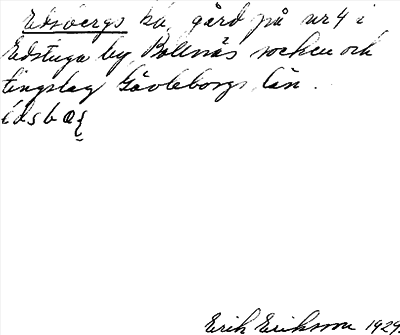 Edsbergs kb. gård på nr 4 i
Edstuga by, Bollnäs socken och
tingslag Gävleborgs län.
ídsbæ
Erik Eriksson 1929.